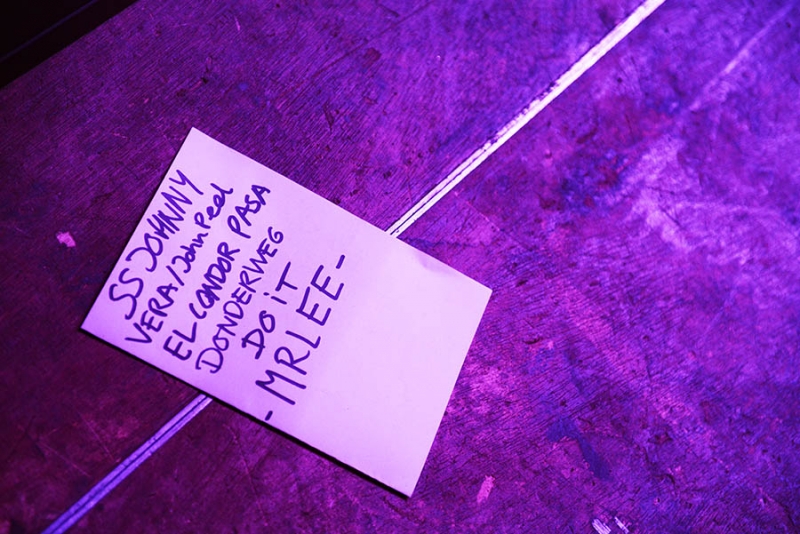 SS JOHNNY
VERA/John Peel
EL CONDOR PASA
DONDERWEG
DO iT
-MRLEE-